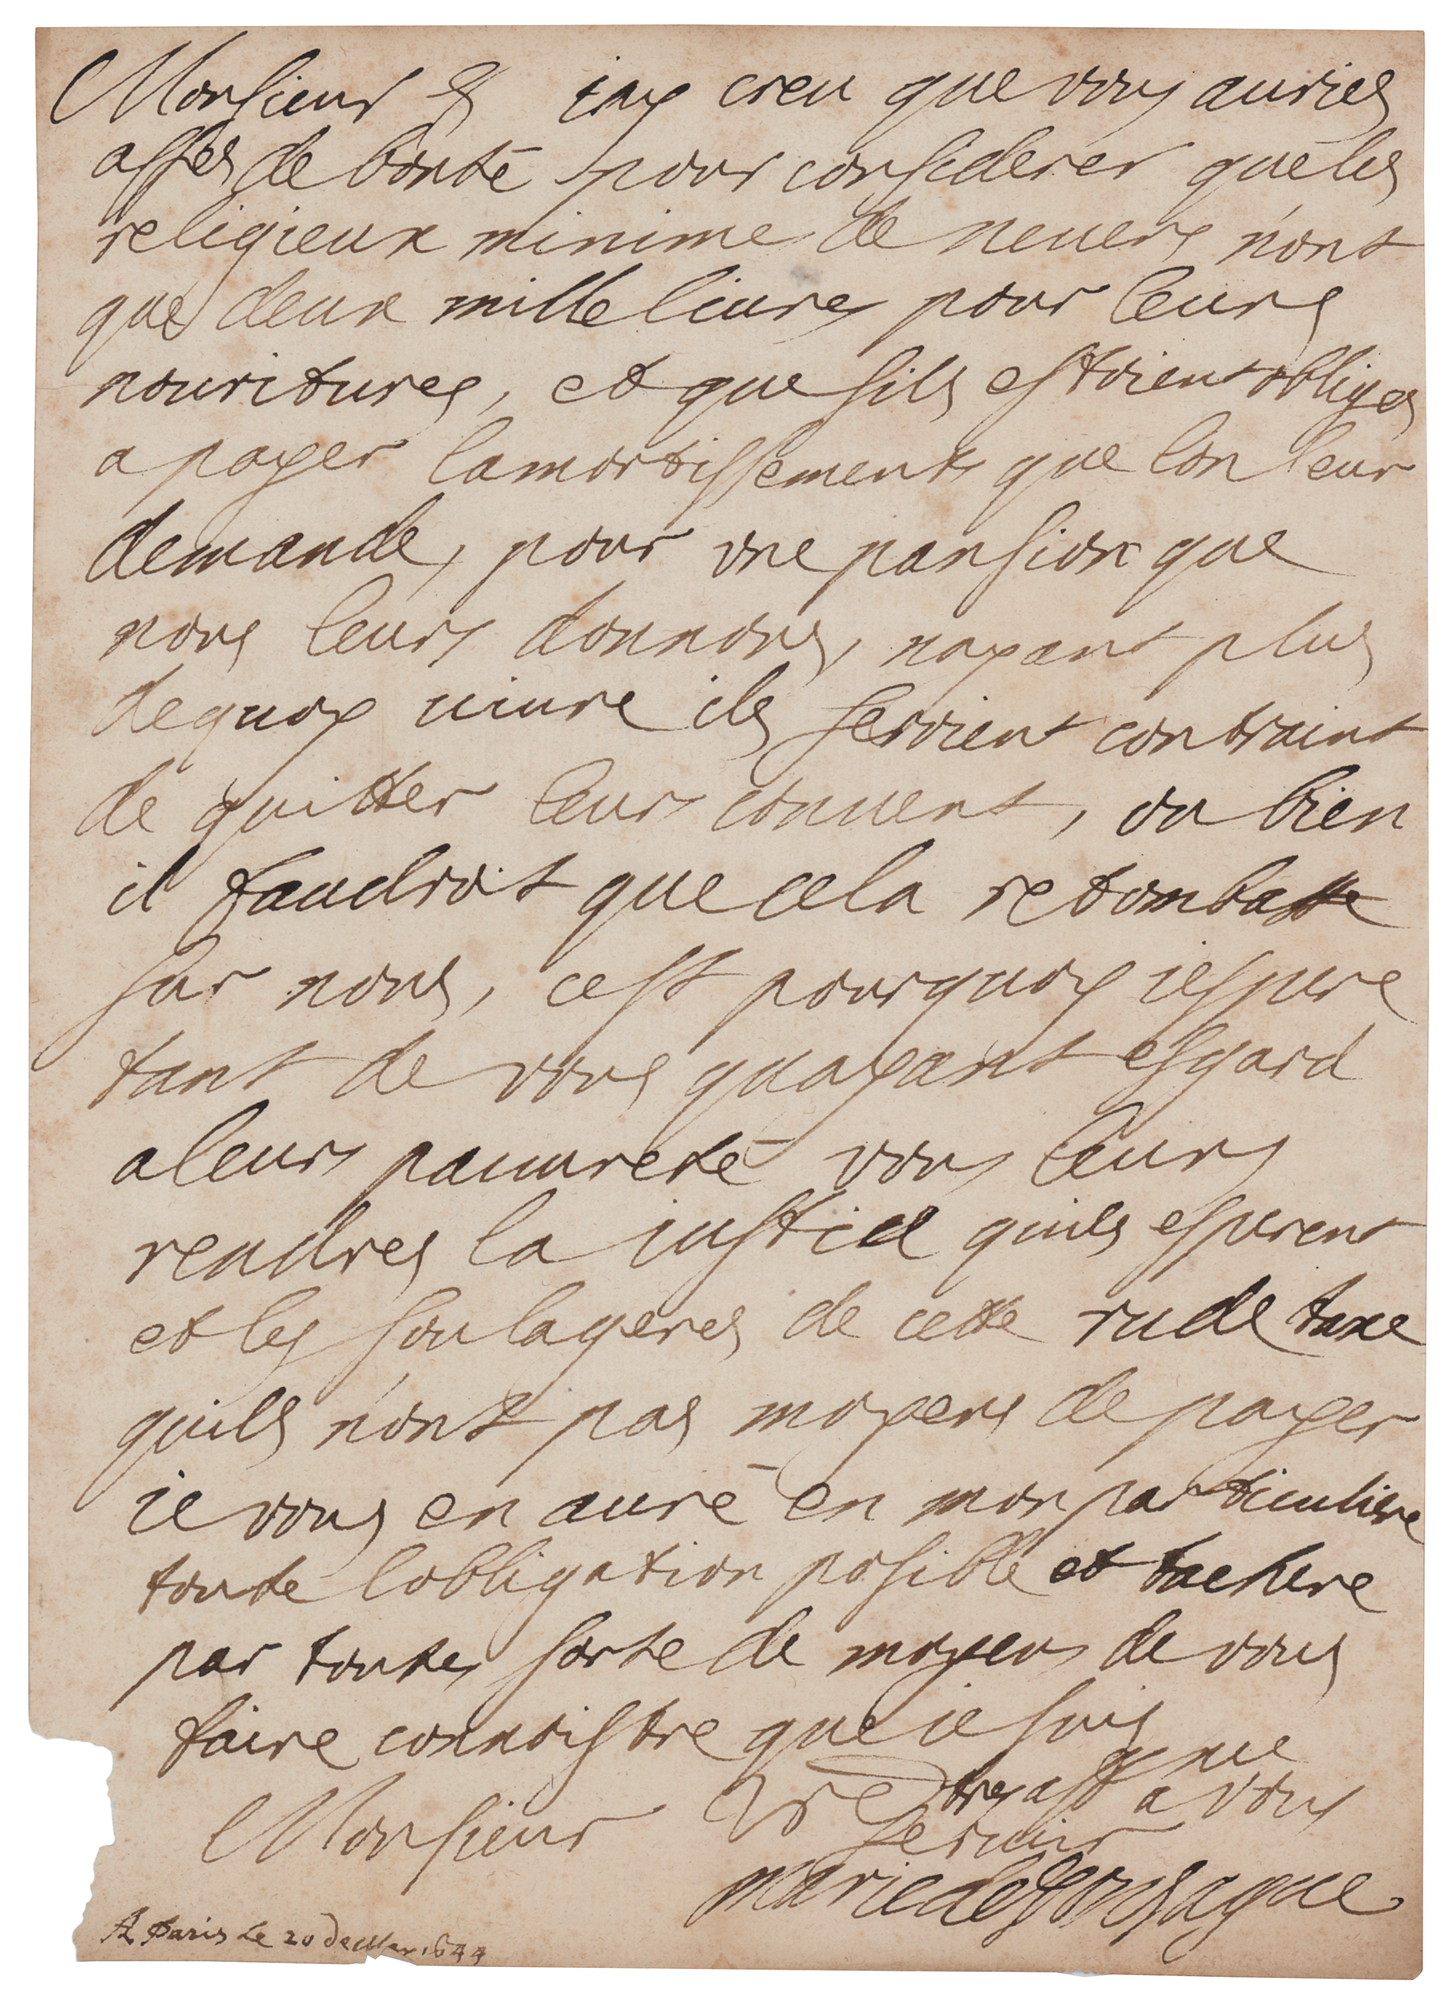 Monsieur iay creu que vous auriés
assés de bonté pour considerer que les
religieux minime de neuers n'ont
que deux mille liures pour leurs
nouritures, et que sils estoient obliges
a payer lamortissements que lon leur
demande, pour vne pansion que
nous leurs donnons, nayant plus
dequoy uiure ils seroient contraint
de quitter leurs conuent, ou bien
il faudroit que cela retombatte
sur nous, cest pourquoy iespere
tant de vous quayant esgard
a leurs pauureté vous leurs
rendres la iustice quils esperent
et les soulageres de cette rude taxe
quils n'ont pas moyens de payer
ie vous en auré en mon particuliere
toute lobligation posible et tachere
par toutes sorte de moyens de vous
faire connoistre que ie suis
Monsieur Vre tres aff a vous
seruir
marie de Gonsague
A Paris Le 20 1644